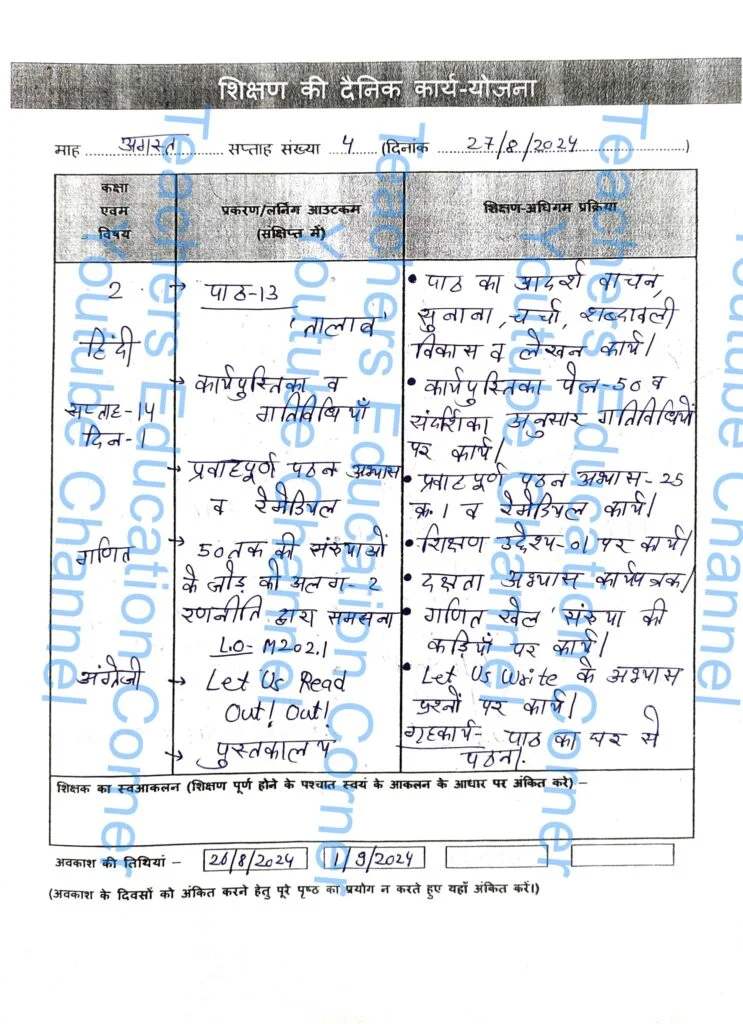 शिक्षण की दैनिक कार्य-योजना
माह अगस्त सप्ताह संख्या 4 (दिनांक 27/8/2024)
कक्षा
एवम
विषय
प्रकरण/लर्निंग आउटकम
(संक्षिप्त में)
शिक्षण-अधिगम प्रक्रिया
2
हिंदी
सप्ताह-14
दिन-1
→ पाठ-13
'तालाब'
→ कार्यपुस्तिका व
गतिविधियाँ
→ प्रवाहपूर्ण पठन अभ्यास
व रेमेडियल
• पाठ का आदर्श वाचन,
सुनाना, चर्चा, शब्दावली
विकास व लेखन कार्य।
• कार्यपुस्तिका पेज-50 व
संदर्शिका अनुसार गतिविधियों
पर कार्य।
• प्रवाहपूर्ण पठन अभ्यास-25
क.1 व रेमेडियल कार्य।
गणित
→ 50 तक की संख्याओं
के जोड़ की अलग-2
रणनीति द्वारा समझना
LO- M202.1
• शिक्षण उद्देश्य-01 पर कार्य।
• दक्षता अभ्यास कार्यपत्रक।
• गणित खेल 'संख्या की
कड़ियाँ पर कार्य।
अंग्रेजी
→ Let Us Read
Out! Out!
→ पुस्तकालय
• Let Us Write के अभ्यास
प्रश्नों पर कार्य।
गृहकार्य- पाठ का घर से
पठन।
शिक्षक का स्वआकलन (शिक्षण पूर्ण होने के पश्चात स्वयं के आकलन के आधार पर अंकित करे) –
अवकाश की तिथियां – 26/8/2024 1/9/2024
(अवकाश के दिवसों को अंकित करने हेतु पूरे पृष्ठ का प्रयोग न करते हुए यहाँ अंकित करें।)
Teachers Education Corner
Youtube Channel
Teachers Education Corner
Youtube Channel
Teachers Education Corner
Youtube Channel